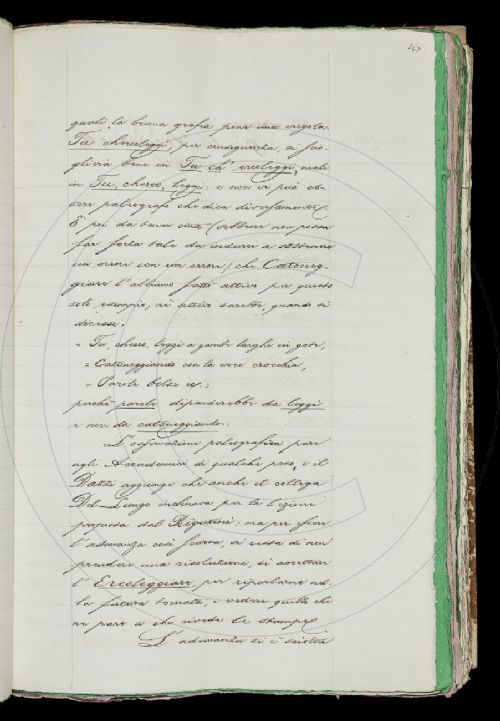 347
quali la buona grafia pone una virgola.
Tu chereleggi, per conseguenza, si scio-
glieria bene in Tu ch' ereleggi, male
in Tu, chereo, leggi: e non vi può es-
sere paleografo che dica diversamente.
E poi da tener conto (sebbene non possa
far forza tale da indurre a sostenere
un errore con un errore) che Cataneg-
giare l'abbiamo fatto attivo per questo
solo esempio; nè attivo sarebbe quando si
dicesse:
" Tu, chereo, leggi a gambe larghe in gote,
" Cataneggiando con le voce crocchia,
" Parole bolse ec.;
perchè parole dipenderebbe da leggi
e non da cataneggiando.
L'osservazione paleografica pare
agli Accademici di qualche peso, e il
Dazzi aggiunge che anche il collega
Del Lungo inchinava per la lezione
proposta dal Rigutini: ma per esser
l'adunanza così scarsa, si resta di non
prendere una risoluzione, di accettar
l'Ereleggiare, per riparlarne nel-
la futura tornata, e vedere quello che
ne pare a chi rivede le stampe.
L'adunanza si è sciolta